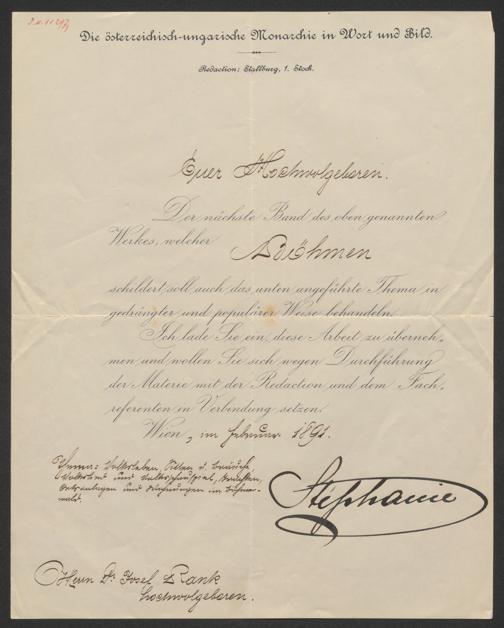 Die österreichisch-ungarische Monarchie in Wort und Bild.
Redaction: Stallburg, 1. Stock.
Euer Hochwolgeboren.
Der nächste Band des oben genannten
Werkes, welcher Böhmen
schildert soll auch das unten angeführte Thema in
gedrängter und populärer Weise behandeln.
Ich lade Sie ein, diese Arbeit zu überneh-
men und wollen Sie sich wegen Durchführung
der Materie mit der Redaction und dem Fach-
referenten in Verbindung setzen.
Wien, im Februar 1891.
Thema: Volksleben, Sitten u. Bräuche,
Volkslied und Volksschauspiel, Trachten,
Ortsanlagen und Wohnungen im Böhmer-
wald.
Stephanie
Herrn Dr. Josef Rank
Hochwolgeboren.